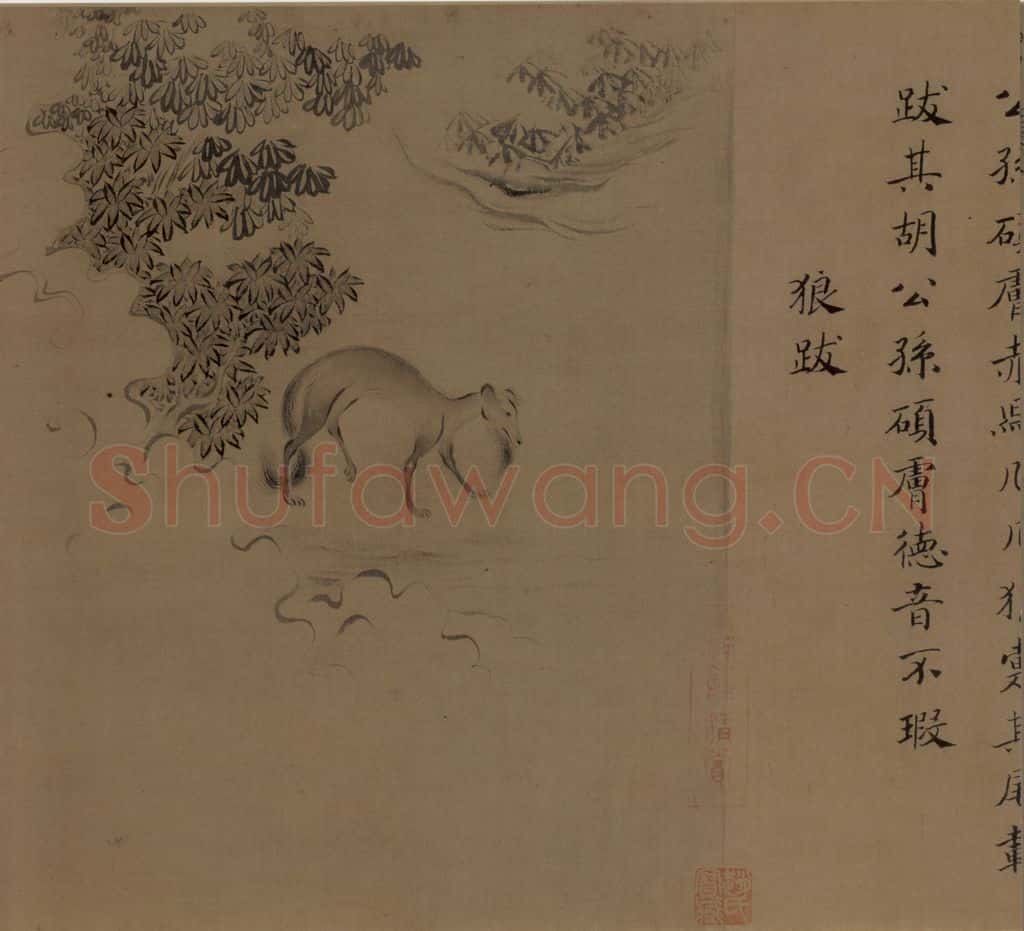 公孫碩膚赤舄几几狼疐其尾載
跋其胡公孫碩膚德音不瑕
狼跋
Shufawang.CN